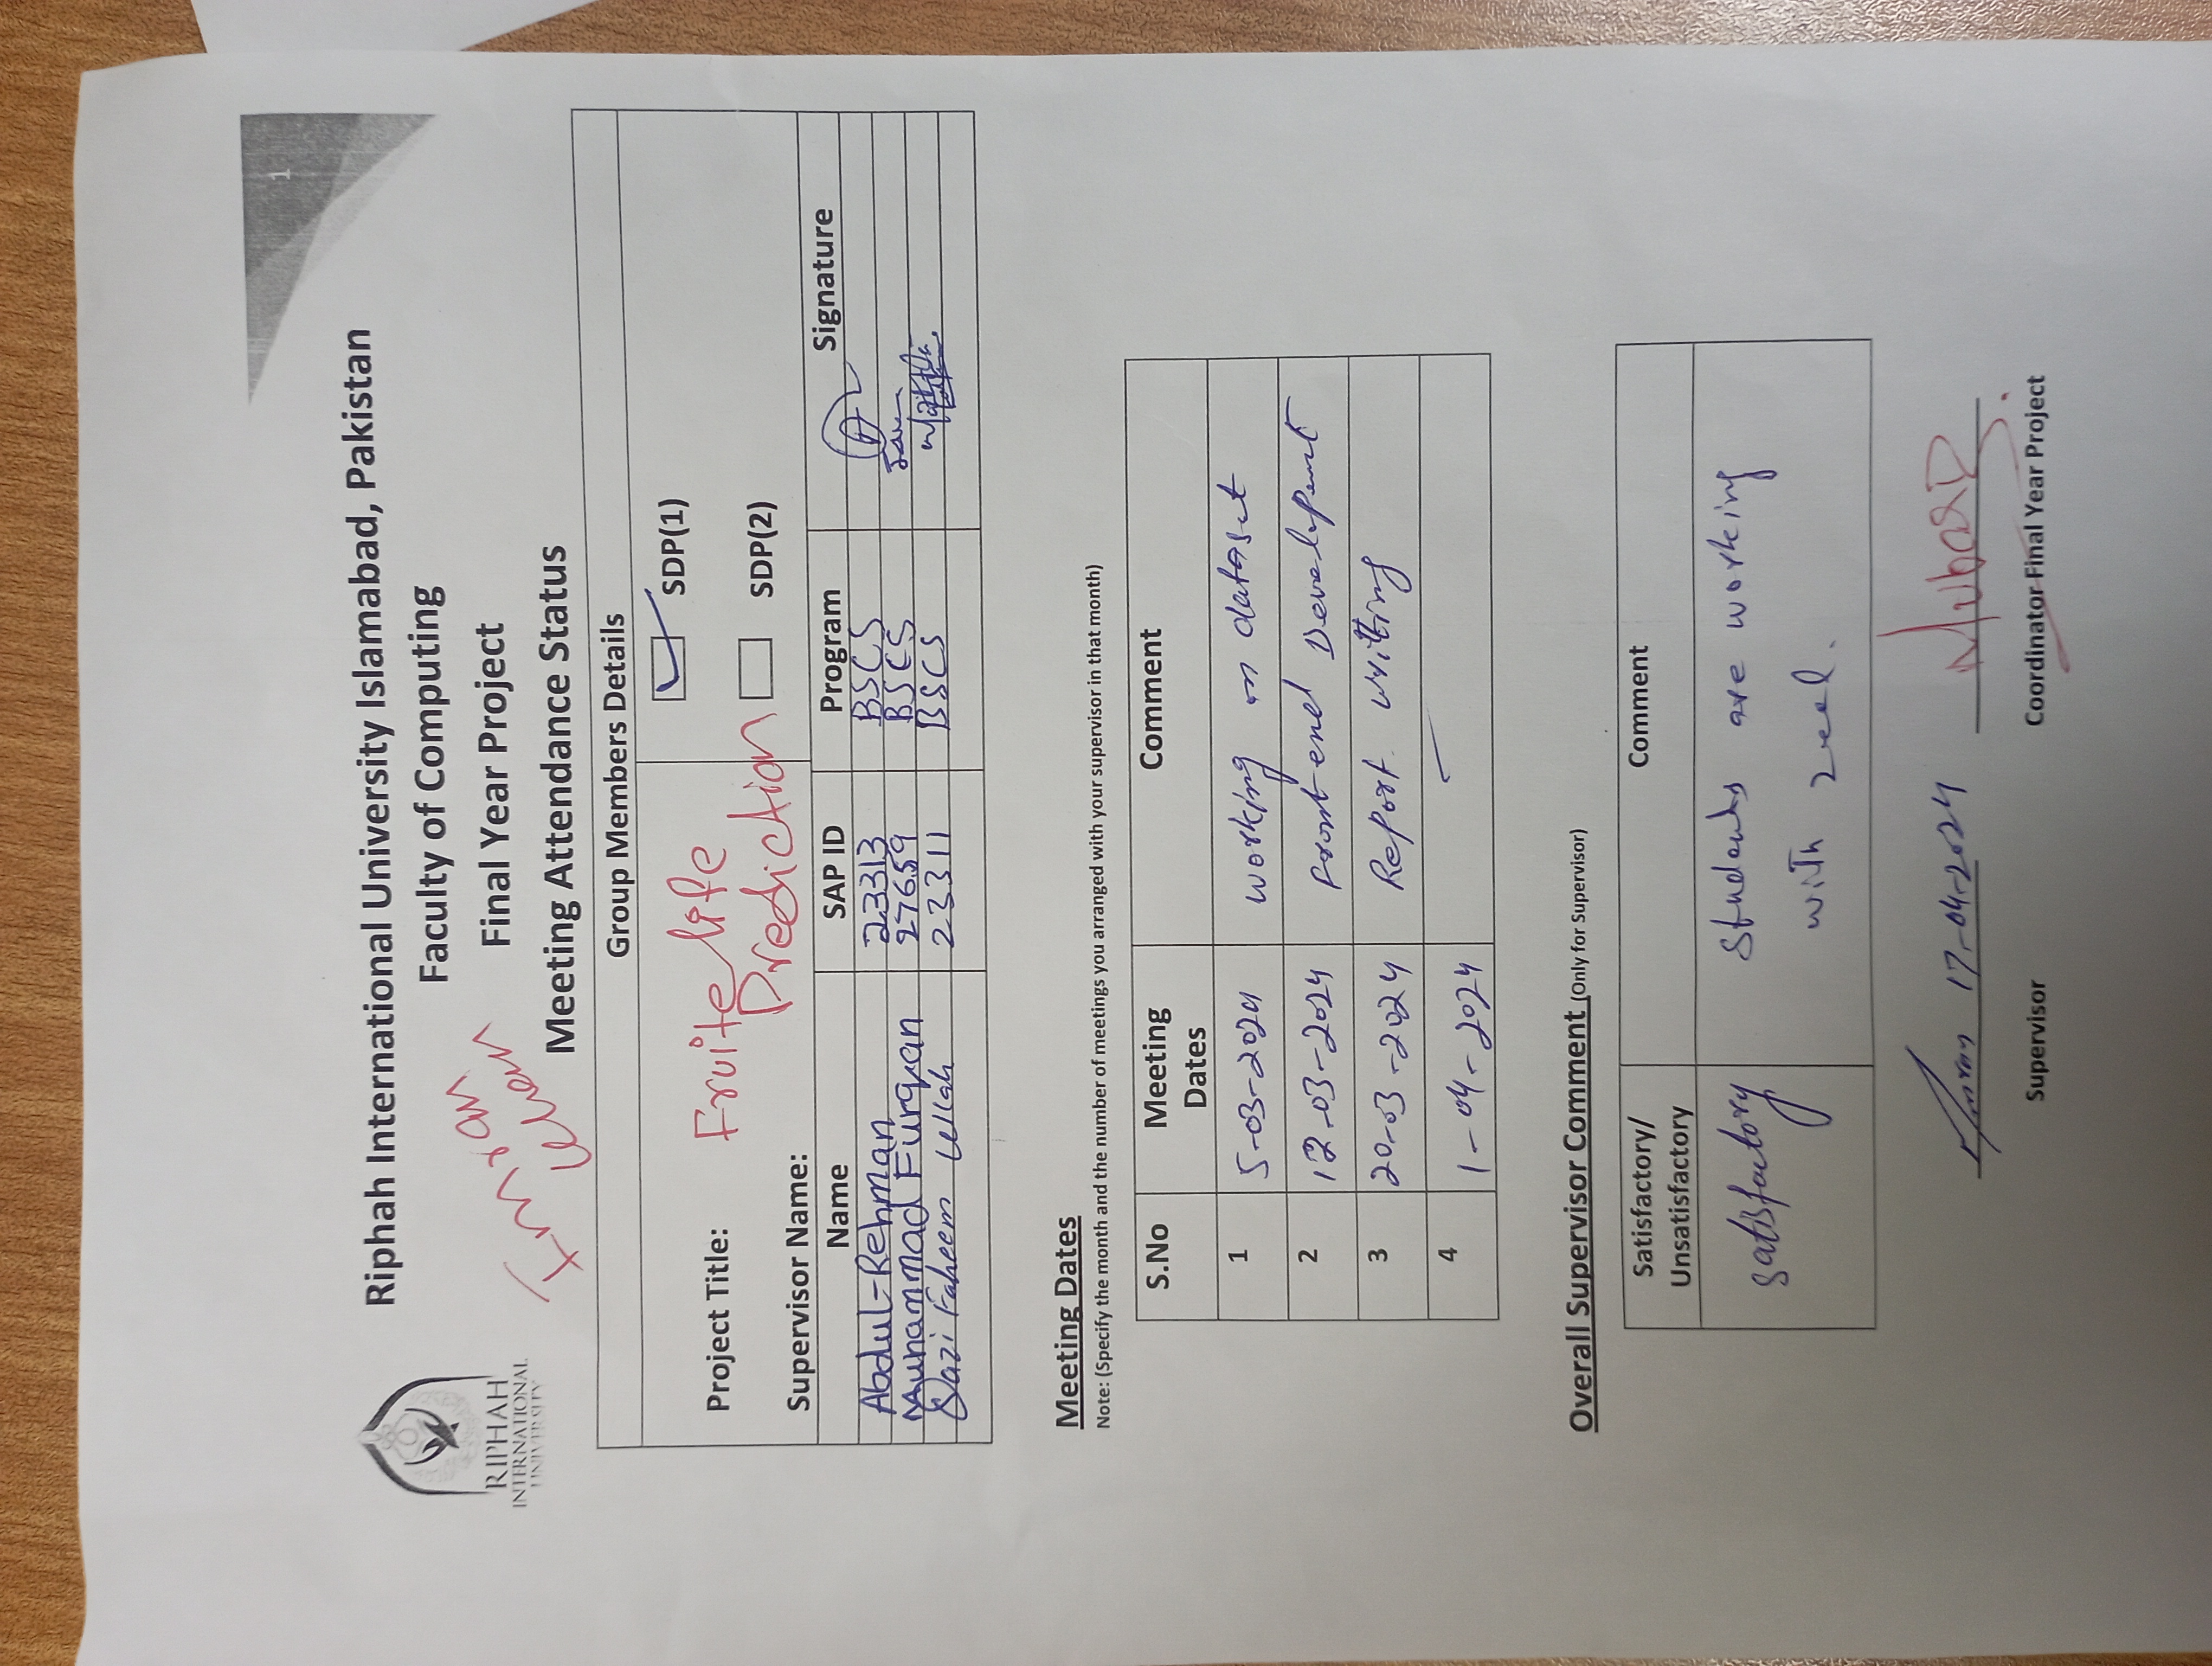 1
Riphah International University Islamabad, Pakistan
Faculty of Computing
Final Year Project
Meeting Attendance Status
RIPHAH
INTERNATIONAL
UNIVERSITY
Imran
Group Members Details
Project Title: Fruite life Prediction
SDP(1)
SDP(2)
Supervisor Name:
Name SAP ID Program Signature
Abdul-Rehman 23313 BSCS
Muhammad Furqan 27659 BSCS
Qazi Faheem Ullah 23311 BSCS
Meeting Dates
Note: (Specify the month and the number of meetings you arranged with your supervisor in that month)
S.No Meeting Dates Comment
1 5-03-2024 working on dataset
2 12-03-2024 front end Develpment
3 20-03-2024 Report writing
4 1-04-2024
Overall Supervisor Comment (Only for Supervisor)
Satisfactory/ Unsatisfactory Comment
satisfactory students are working
with zeel.
17-04-2024
Supervisor Coordinator Final Year Project